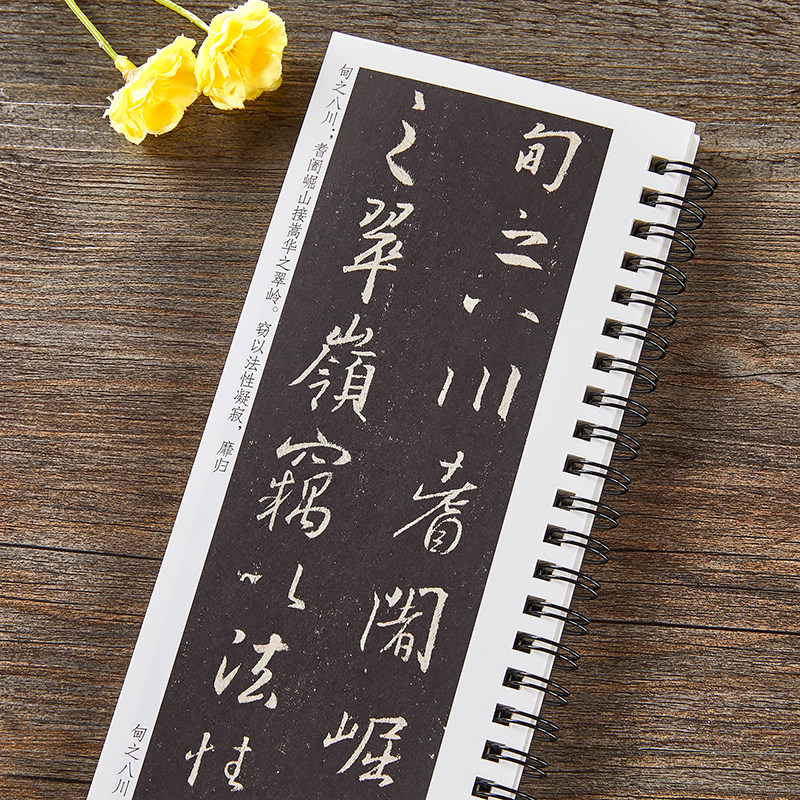 甸之八川耆闍崛
之翠嶺竊以法性
甸之八川；耆阇崛山接嵩华之翠岭。窃以法性凝寂，靡归
甸之八川